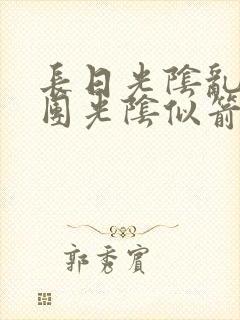 長日光陰亂
團光陰似箭
郭秀賓